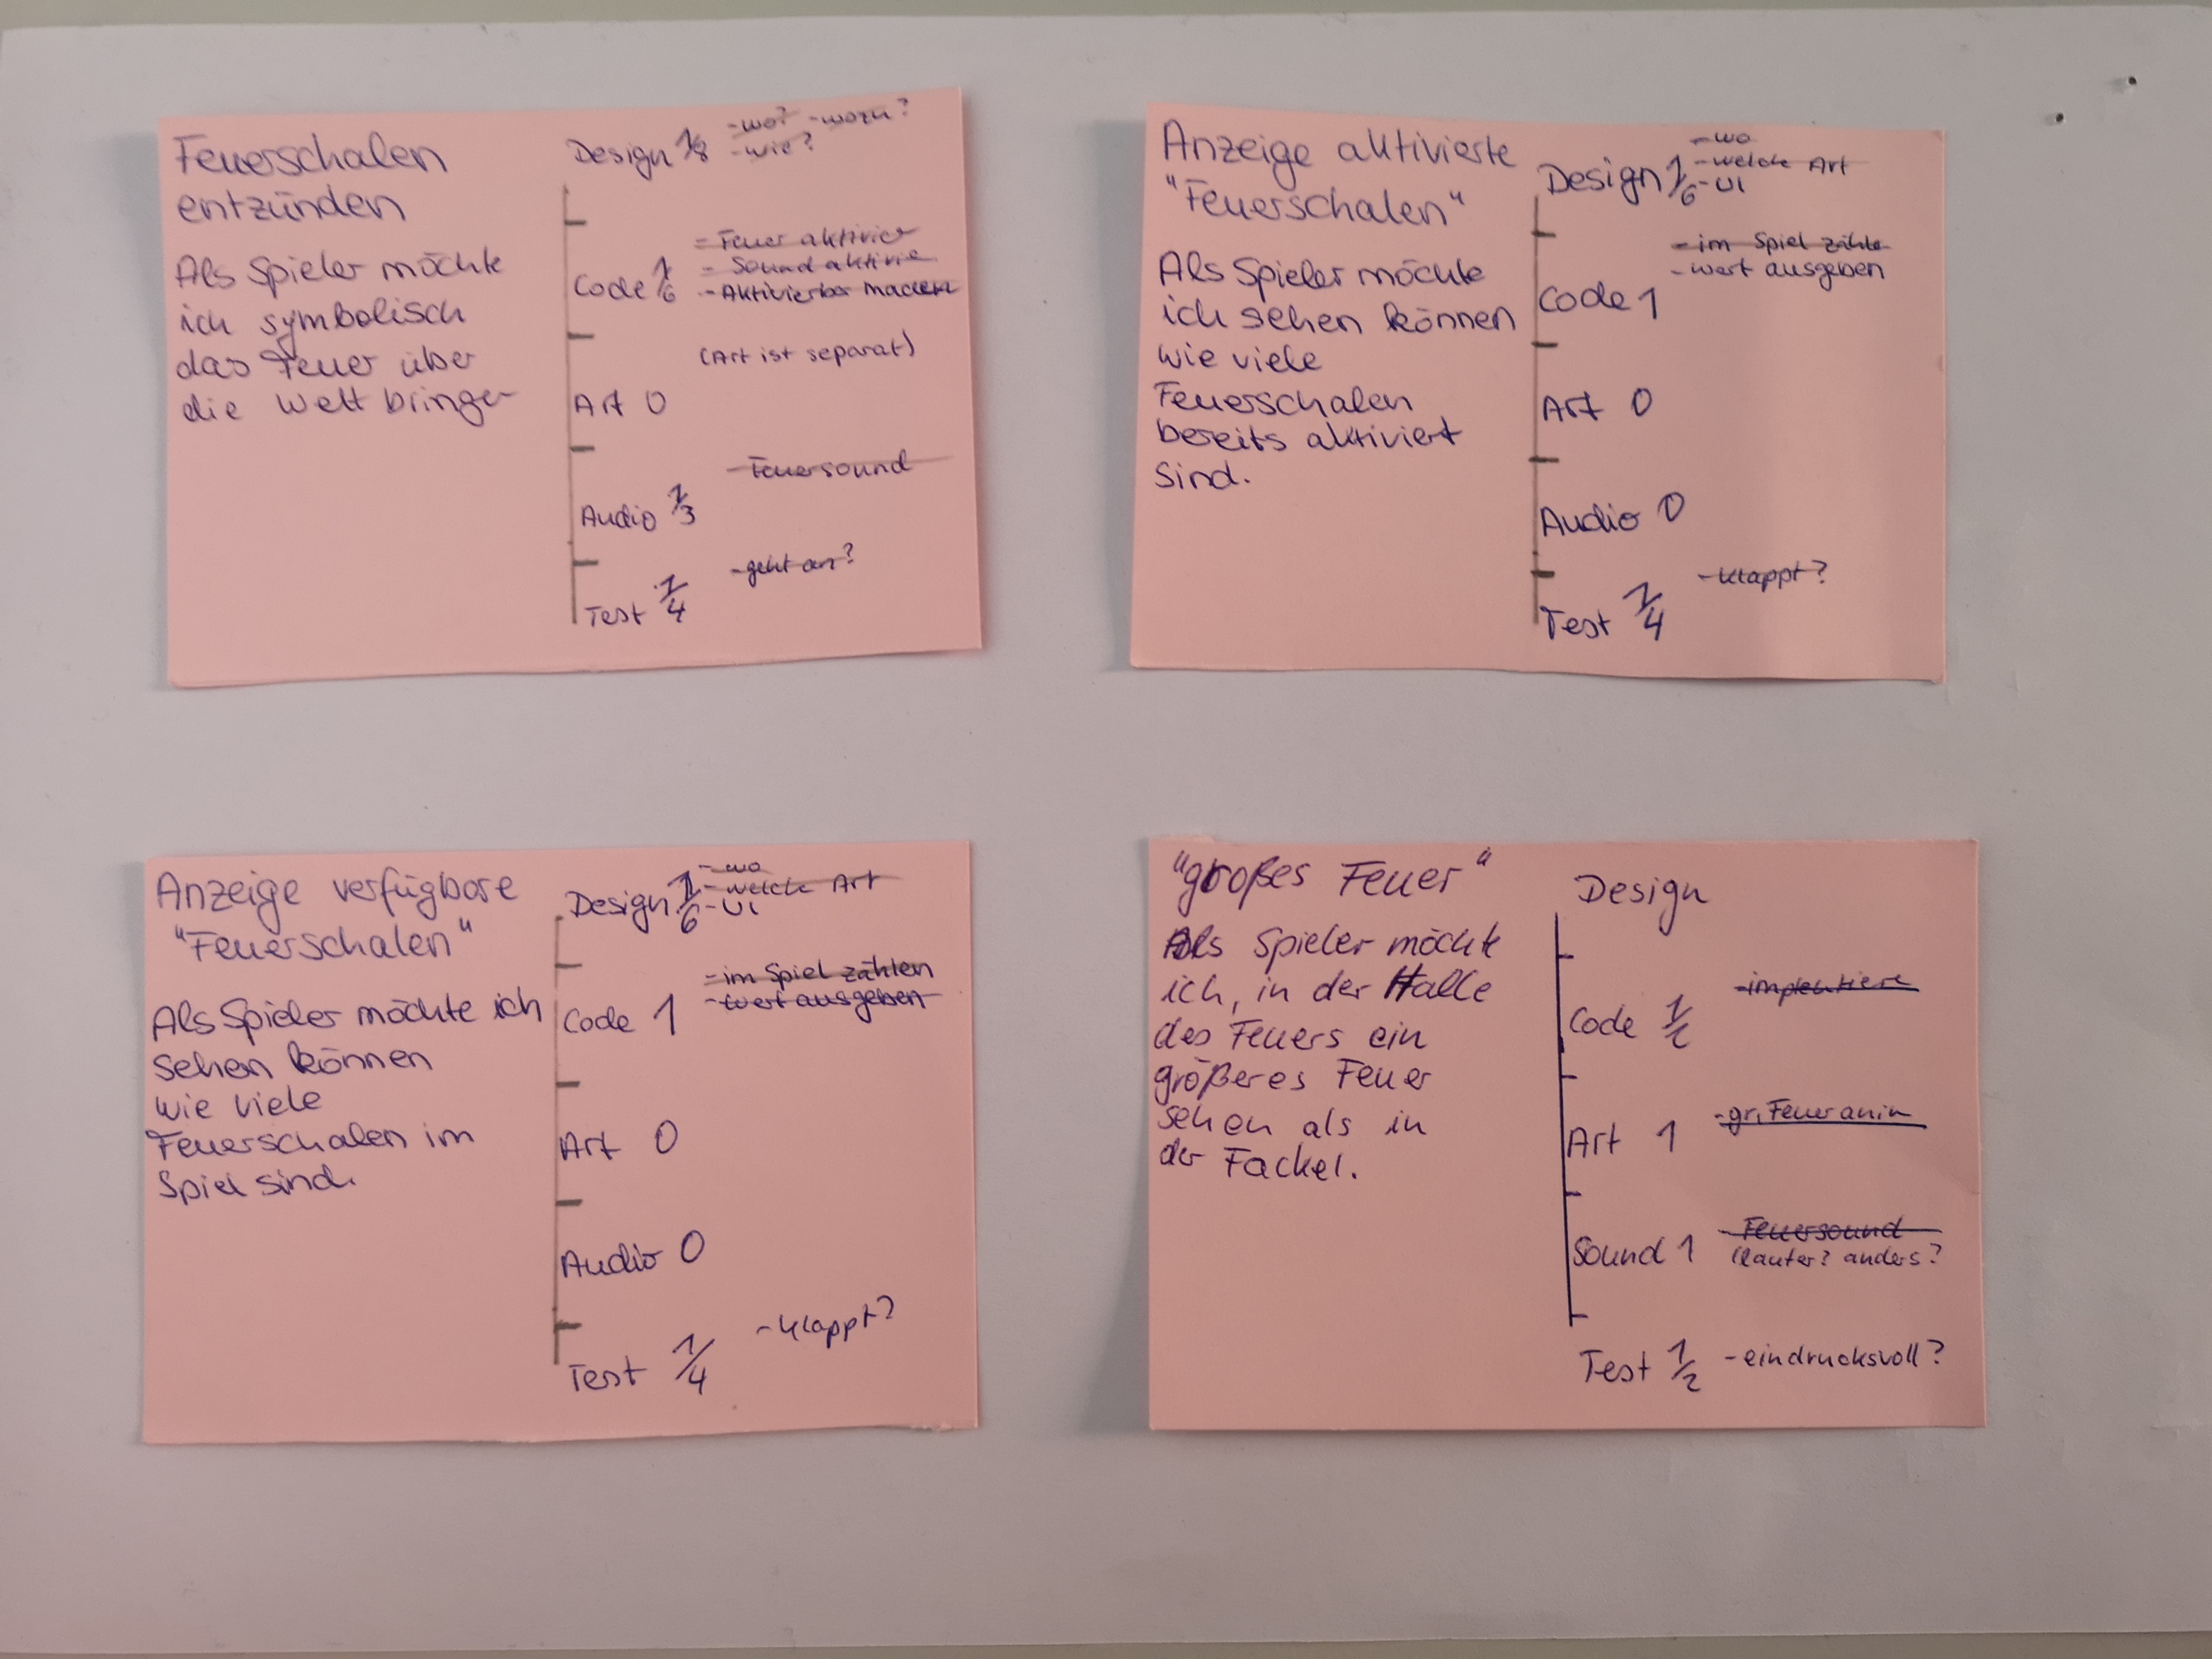 Feuerschalen
entzünden
Als Spieler möchte
ich symbolisch
das Feuer über
die Welt bringen
Design 1/8
-wo? -wozu?
-wie?
Code 1/6
- Feuer aktivier
- Sound aktivie
- Aktivierbar machen
(Art ist separat)
Art 0
- Feuersound
Audio 1/3
-geht an?
Test 1/4
Anzeige aktivierte
"Feuerschalen"
Als Spieler möchte
ich sehen können
wie viele
Feuerschalen
bereits aktiviert
sind.
Design 1/6
-wo
-welche Art
-UI
Code 1
- im Spiel zähle
- wert ausgeben
Art 0
Audio 0
-klappt?
Test 1/4
Anzeige verfügbare
"Feuerschalen"
Als Spieler möchte ich
sehen können
wie viele
Feuerschalen im
Spiel sind.
Design 1/6
-wo
-welche Art
-UI
Code 1
-im Spiel zählen
-wert ausgeben
Art 0
Audio 0
-klappt?
Test 1/4
"großes Feuer"
Als Spieler möchte
ich, in der Halle
des Feuers ein
größeres Feuer
sehen als in
der Fackel.
Design
Code 1/2
Art 1
-gr. Feuer anim
Sound 1
- Feuersound
(lauter? anders?
Test 1/2 -eindrucksvoll?